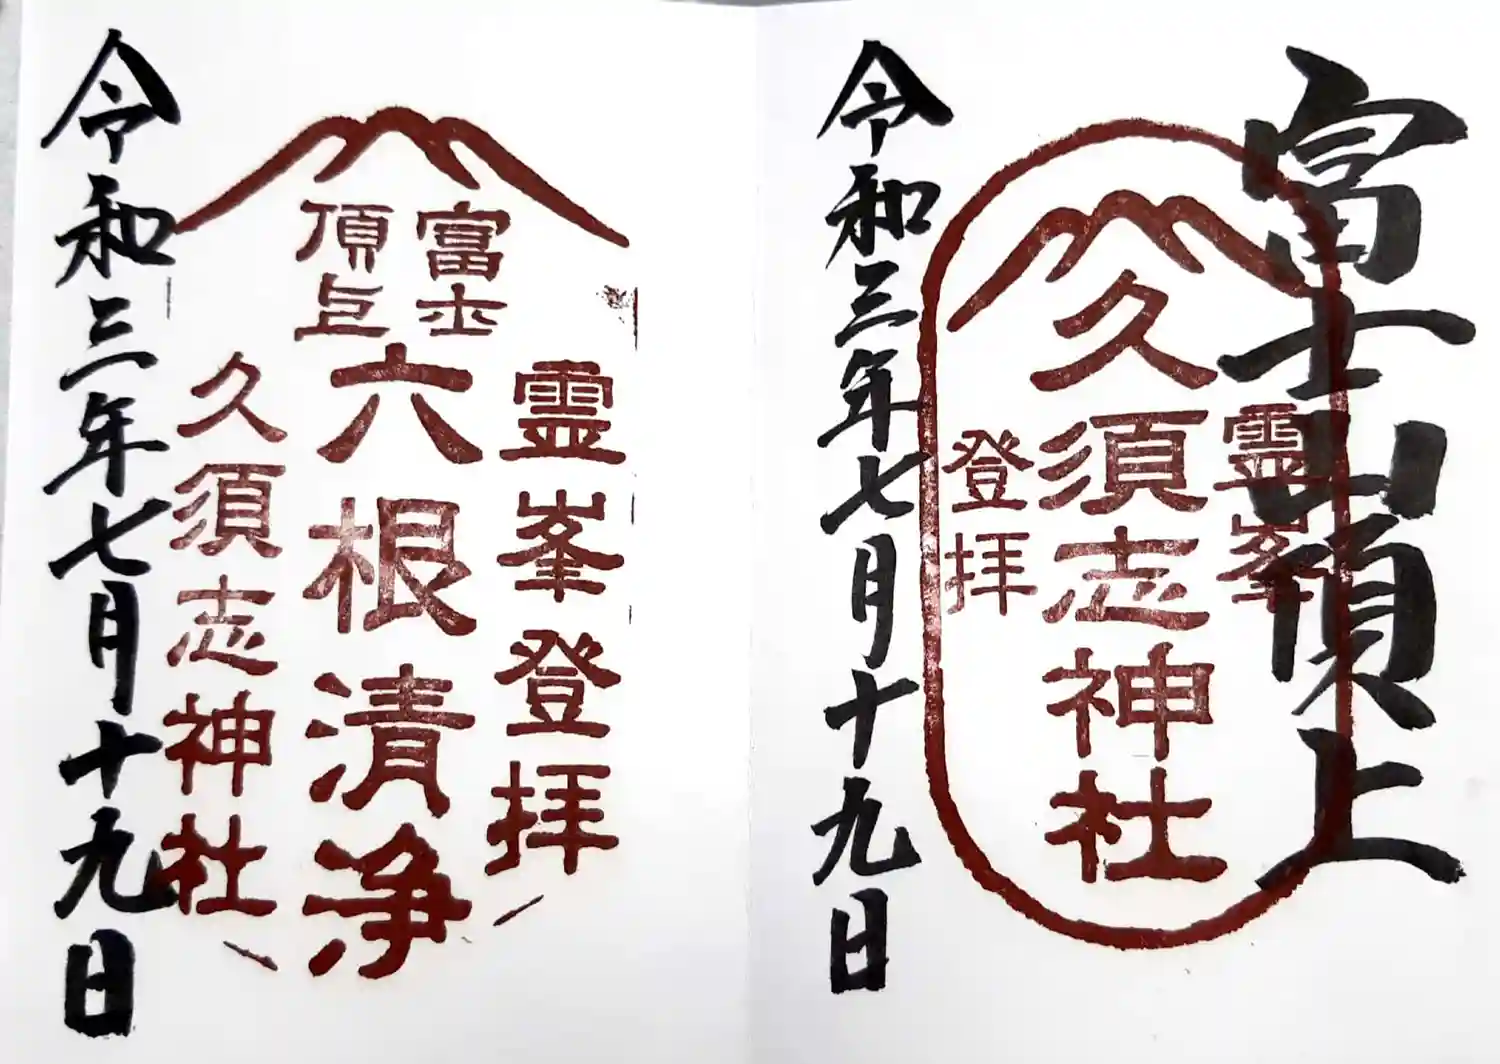 富士山頂上
霊峯
久須志神社
登拝
令和三年七月十九日
富士
頂上
霊峯登拝
六根清浄
久須志神社
令和三年七月十九日